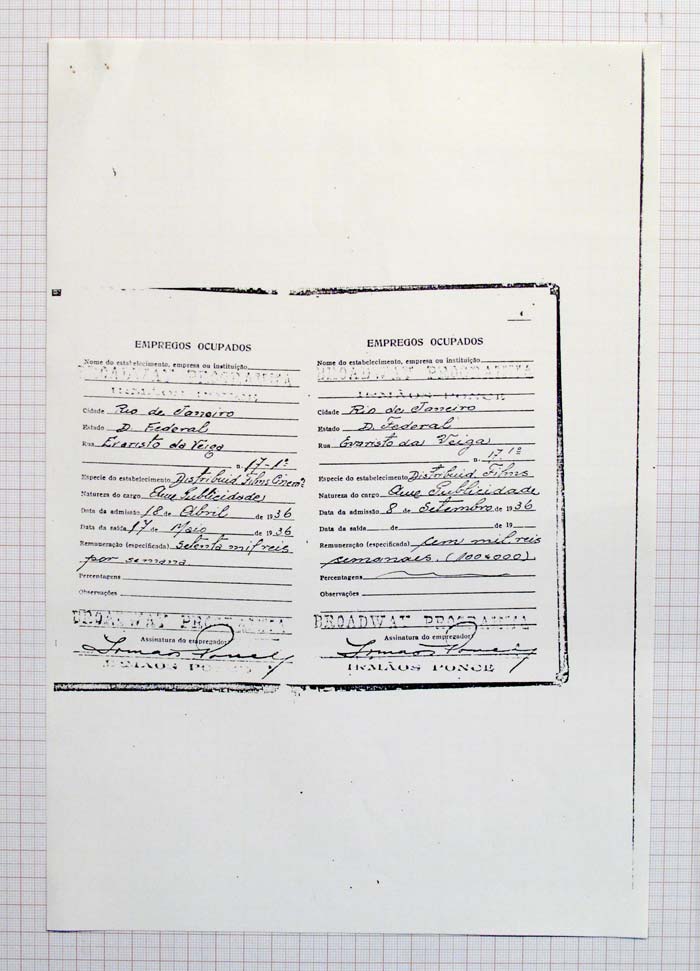 EMPREGOS OCUPADOS
Nome do estabelecimento, empresa ou instituição
BROADWAY PROGRAMMA
IRMÃOS PONCE
Cidade Rio de Janeiro
Estado D. Federal
Rua Evaristo da Veiga
n. 17-1º
Especie do estabelecimento Distribuid Films Cinem?
Natureza do cargo Aux Publicidade
Data da admissão 18 de Abril de 1936
Data da saída 17 de Maio de 1936
Remuneração (especificada) Setenta mil reis
por semana
Percentagens
Observações
BROADWAY PROGRAMMA
Assinatura do empregador
Irmãos Ponce
IRMÃOS PONCE
4
EMPREGOS OCUPADOS
Nome do estabelecimento, empresa ou instituição
BROADWAY PROGRAMMA
IRMÃOS PONCE
Cidade Rio de Janeiro
Estado D. Federal
Rua Evaristo da Veiga
n. 17 1º
Especie do estabelecimento Distribuid Films
Natureza do cargo Aux Publicidade
Data da admissão 8 de Setembro de 1936
Data da saída de de 19
Remuneração (especificada) cem mil reis
semanais. (100$000)
Percentagens
Observações
BROADWAY PROGRAMMA
Assinatura do empregador
Irmãos Ponce
IRMÃOS PONCE